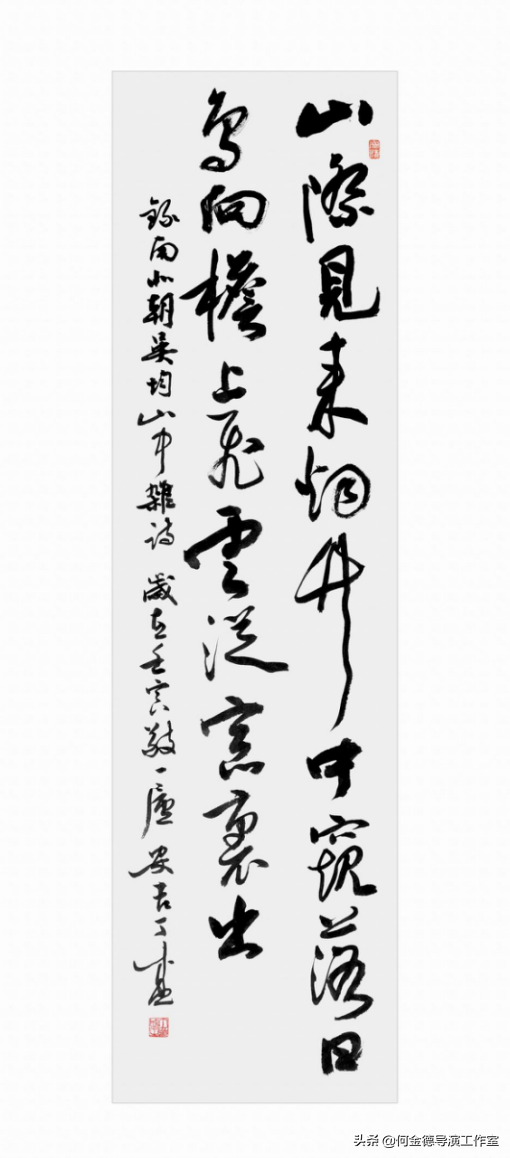 山際見来烟竹中窺落日
鳥向檐上飛雲從窓裏出
錄南北朝吴均山中雜詩 歲在壬寅敬一廬安吉丁
头条 @何金德导演工作室